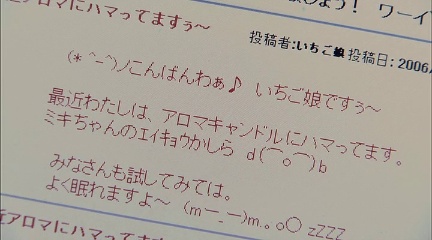 アロマにハマってますぅ～
よう! ワーイ
投稿者:いちご娘 投稿日: 2006
(*ˆｰˆ)ノこんばんわぁ♪ いちご娘ですぅ～
最近わたしは、アロマキャンドルにハマってます。
ミキちゃんのエイキョウかしら d(⌒o⌒)b
みなさんも試してみては。
よく眠れますよ～ (m￣_￣)m.｡o○ zZZZ
近アロマにハマってますぅ